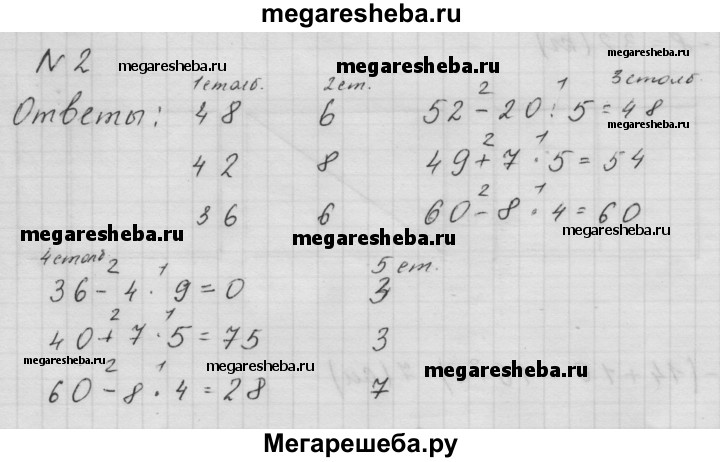 megaresheba.ru
N 2
megaresheba.ru
megaresheba.ru
1 столб. 2 ст. 3 столб.
Ответы: 48 6 52 - 20 : 5 = 48
2 1
megaresheba.ru
42 8 49 + 7 · 5 = 54
2 1
megaresheba.ru
megaresheba.ru
36 6 60 - 8 · 4 = 60
2 1
megaresheba.ru
megaresheba.ru
megaresheba.ru
4 столб. 5 ст.
2 1
36 - 4 · 9 = 0 3
2 1
40 + 7 · 5 = 75 3
megaresheba.ru
megaresheba.ru
megaresheba.ru
2 1
60 - 8 · 4 = 28 7
Мегарешеба.ру